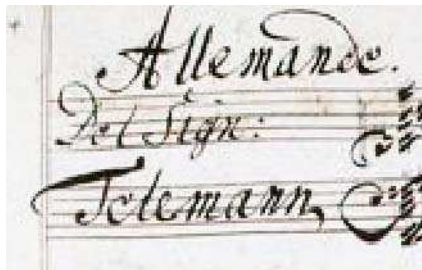 Allemande.
Del Sign:
Telemann,